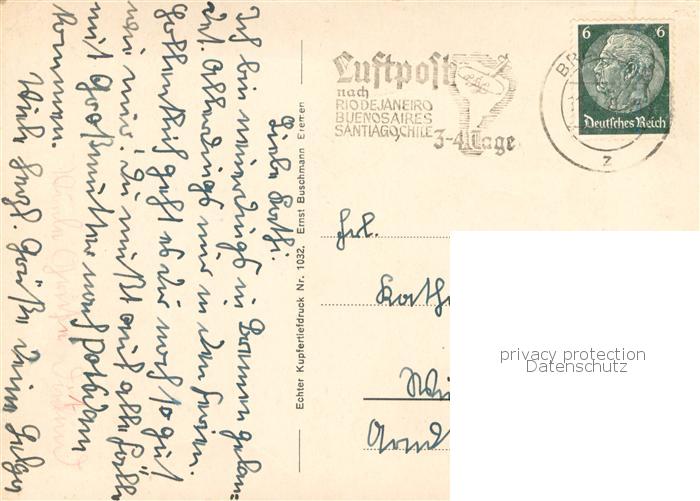 Liebe Käthi!
Ich bin neuerdings in Bremen gelan=
det. Allerdings nur in den Ferien.
Hoffentlich geht es dir noch so gut
wie mir! Du mußt auf alle Fälle
mit Großmutter nach Potsdam
kommen.
Viele herzl. Grüße Deine
Echter Kupfertiefdruck Nr. 1032, Ernst Buschmann Bremen
Luftpost
nach
RIO DE JANEIRO
BUENOS AIRES
SANTIAGO, CHILE
3-4 Tage
BR
z
6 6
Deutsches Reich
Frl.
Käthe
privacy protection
Datenschutz